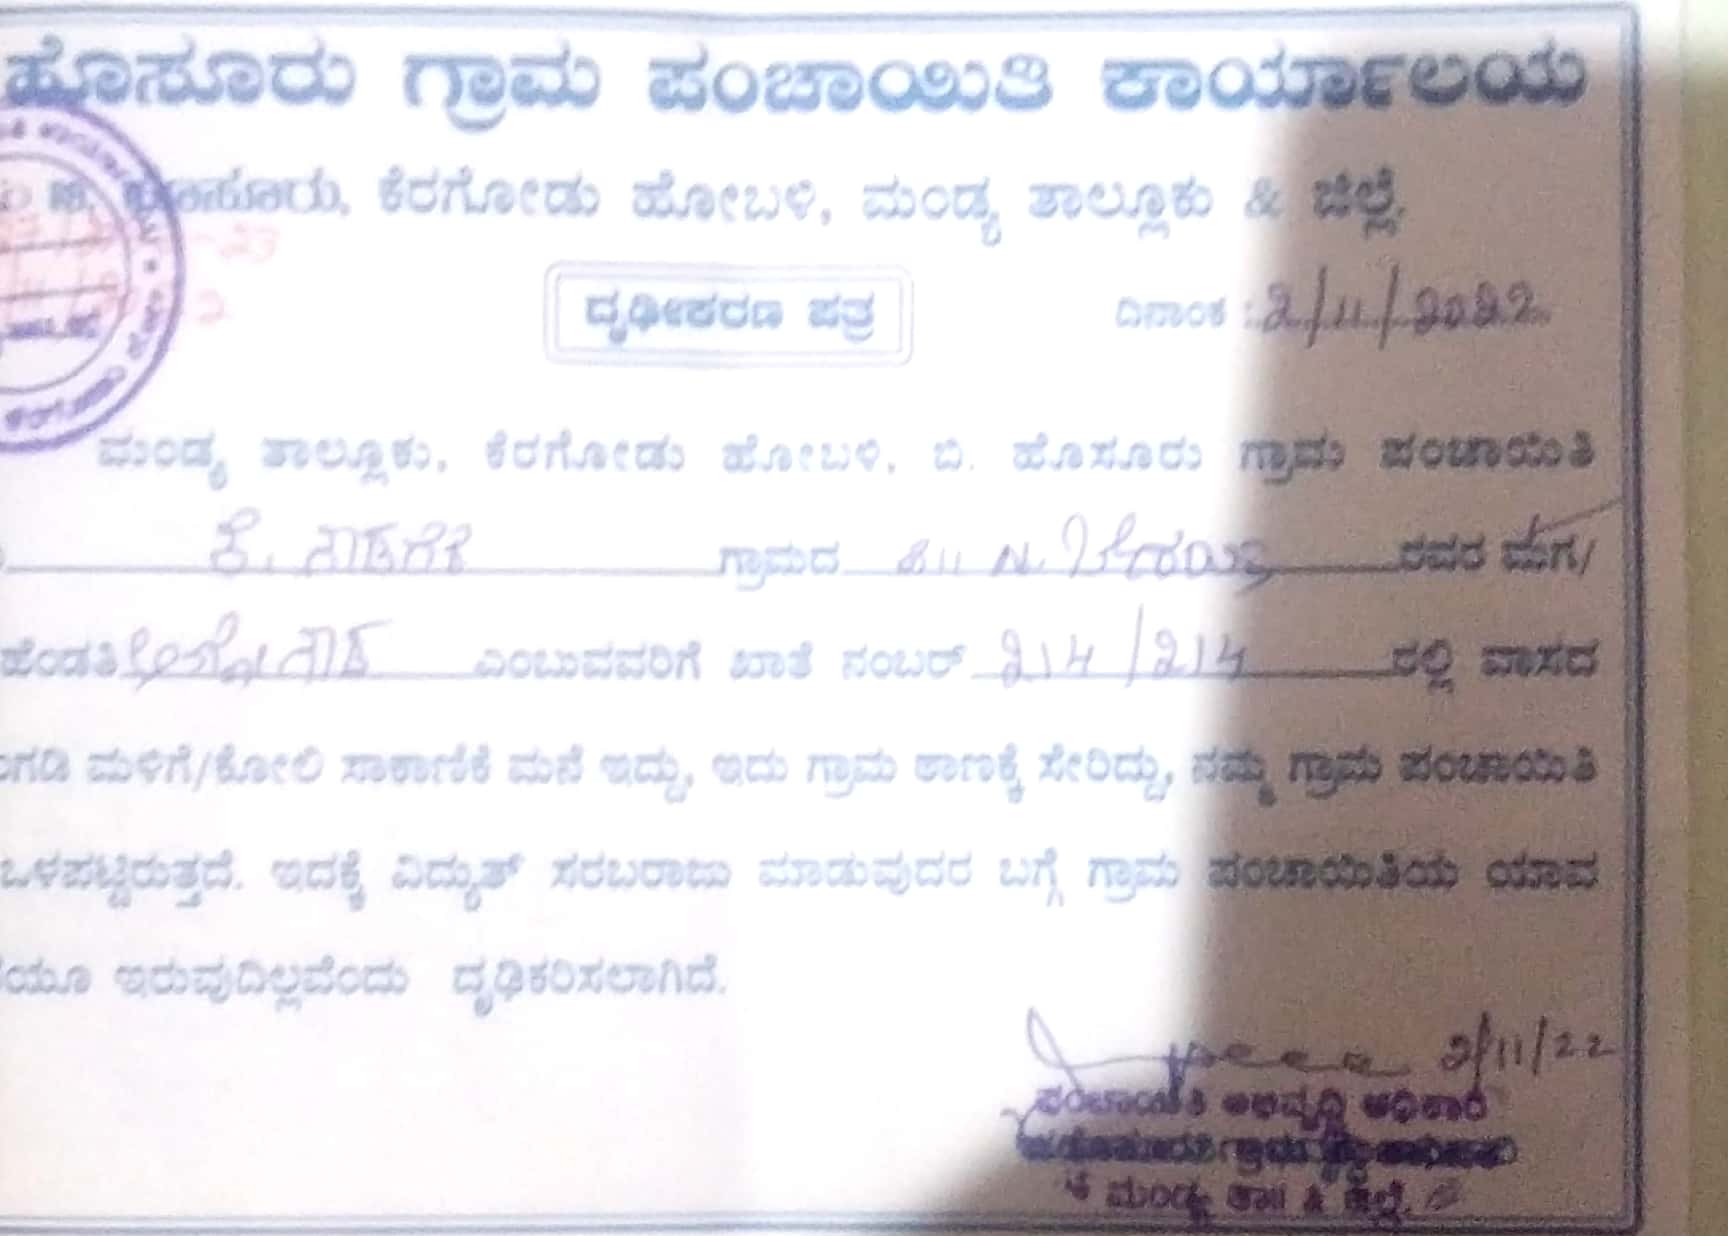 ಹೊಸೂರು ಗ್ರಾಮ ಪಂಚಾಯಿತಿ ಕಾರ್ಯಾಲಯ
ಬಿ. ಹೊಸೂರು, ಕೆರಗೋಡು ಹೋಬಳಿ, ಮಂಡ್ಯ ತಾಲ್ಲೂಕು & ಜಿಲ್ಲೆ.
ದೃಢೀಕರಣ ಪತ್ರ
ದಿನಾಂಕ : 2/11/2022
ಮಂಡ್ಯ ತಾಲ್ಲೂಕು, ಕೆರಗೋಡು ಹೋಬಳಿ, ಬಿ. ಹೊಸೂರು ಗ್ರಾಮ ಪಂಚಾಯಿತಿ
ಗ್ರಾಮದ ರವರ ಮಗ/
ಹೆಂಡತಿ ಎಂಬುವವರಿಗೆ ಖಾತೆ ನಂಬರ್ 214/214 ರಲ್ಲಿ ವಾಸದ
ಮಳಿಗೆ/ಕೋಲಿ ಸಾಕಾಣಿಕೆ ಮನೆ ಇದ್ದು, ಇದು ಗ್ರಾಮ ಠಾಣಕ್ಕೆ ಸೇರಿದ್ದು, ನಮ್ಮ ಗ್ರಾಮ ಪಂಚಾಯಿತಿ
ಒಳಪಟ್ಟಿರುತ್ತದೆ. ಇದಕ್ಕೆ ವಿದ್ಯುತ್ ಸರಬರಾಜು ಮಾಡುವುದರ ಬಗ್ಗೆ ಗ್ರಾಮ ಪಂಚಾಯಿತಿಯ ಯಾವ
ಇರುವುದಿಲ್ಲವೆಂದು ದೃಢಿಕರಿಸಲಾಗಿದೆ.
2/11/22
ಪಂಚಾಯಿತಿ ಅಭಿವೃದ್ಧಿ ಅಧಿಕಾರಿ
ಮಂಡ್ಯ ತಾ॥ & ಜಿಲ್ಲೆ.